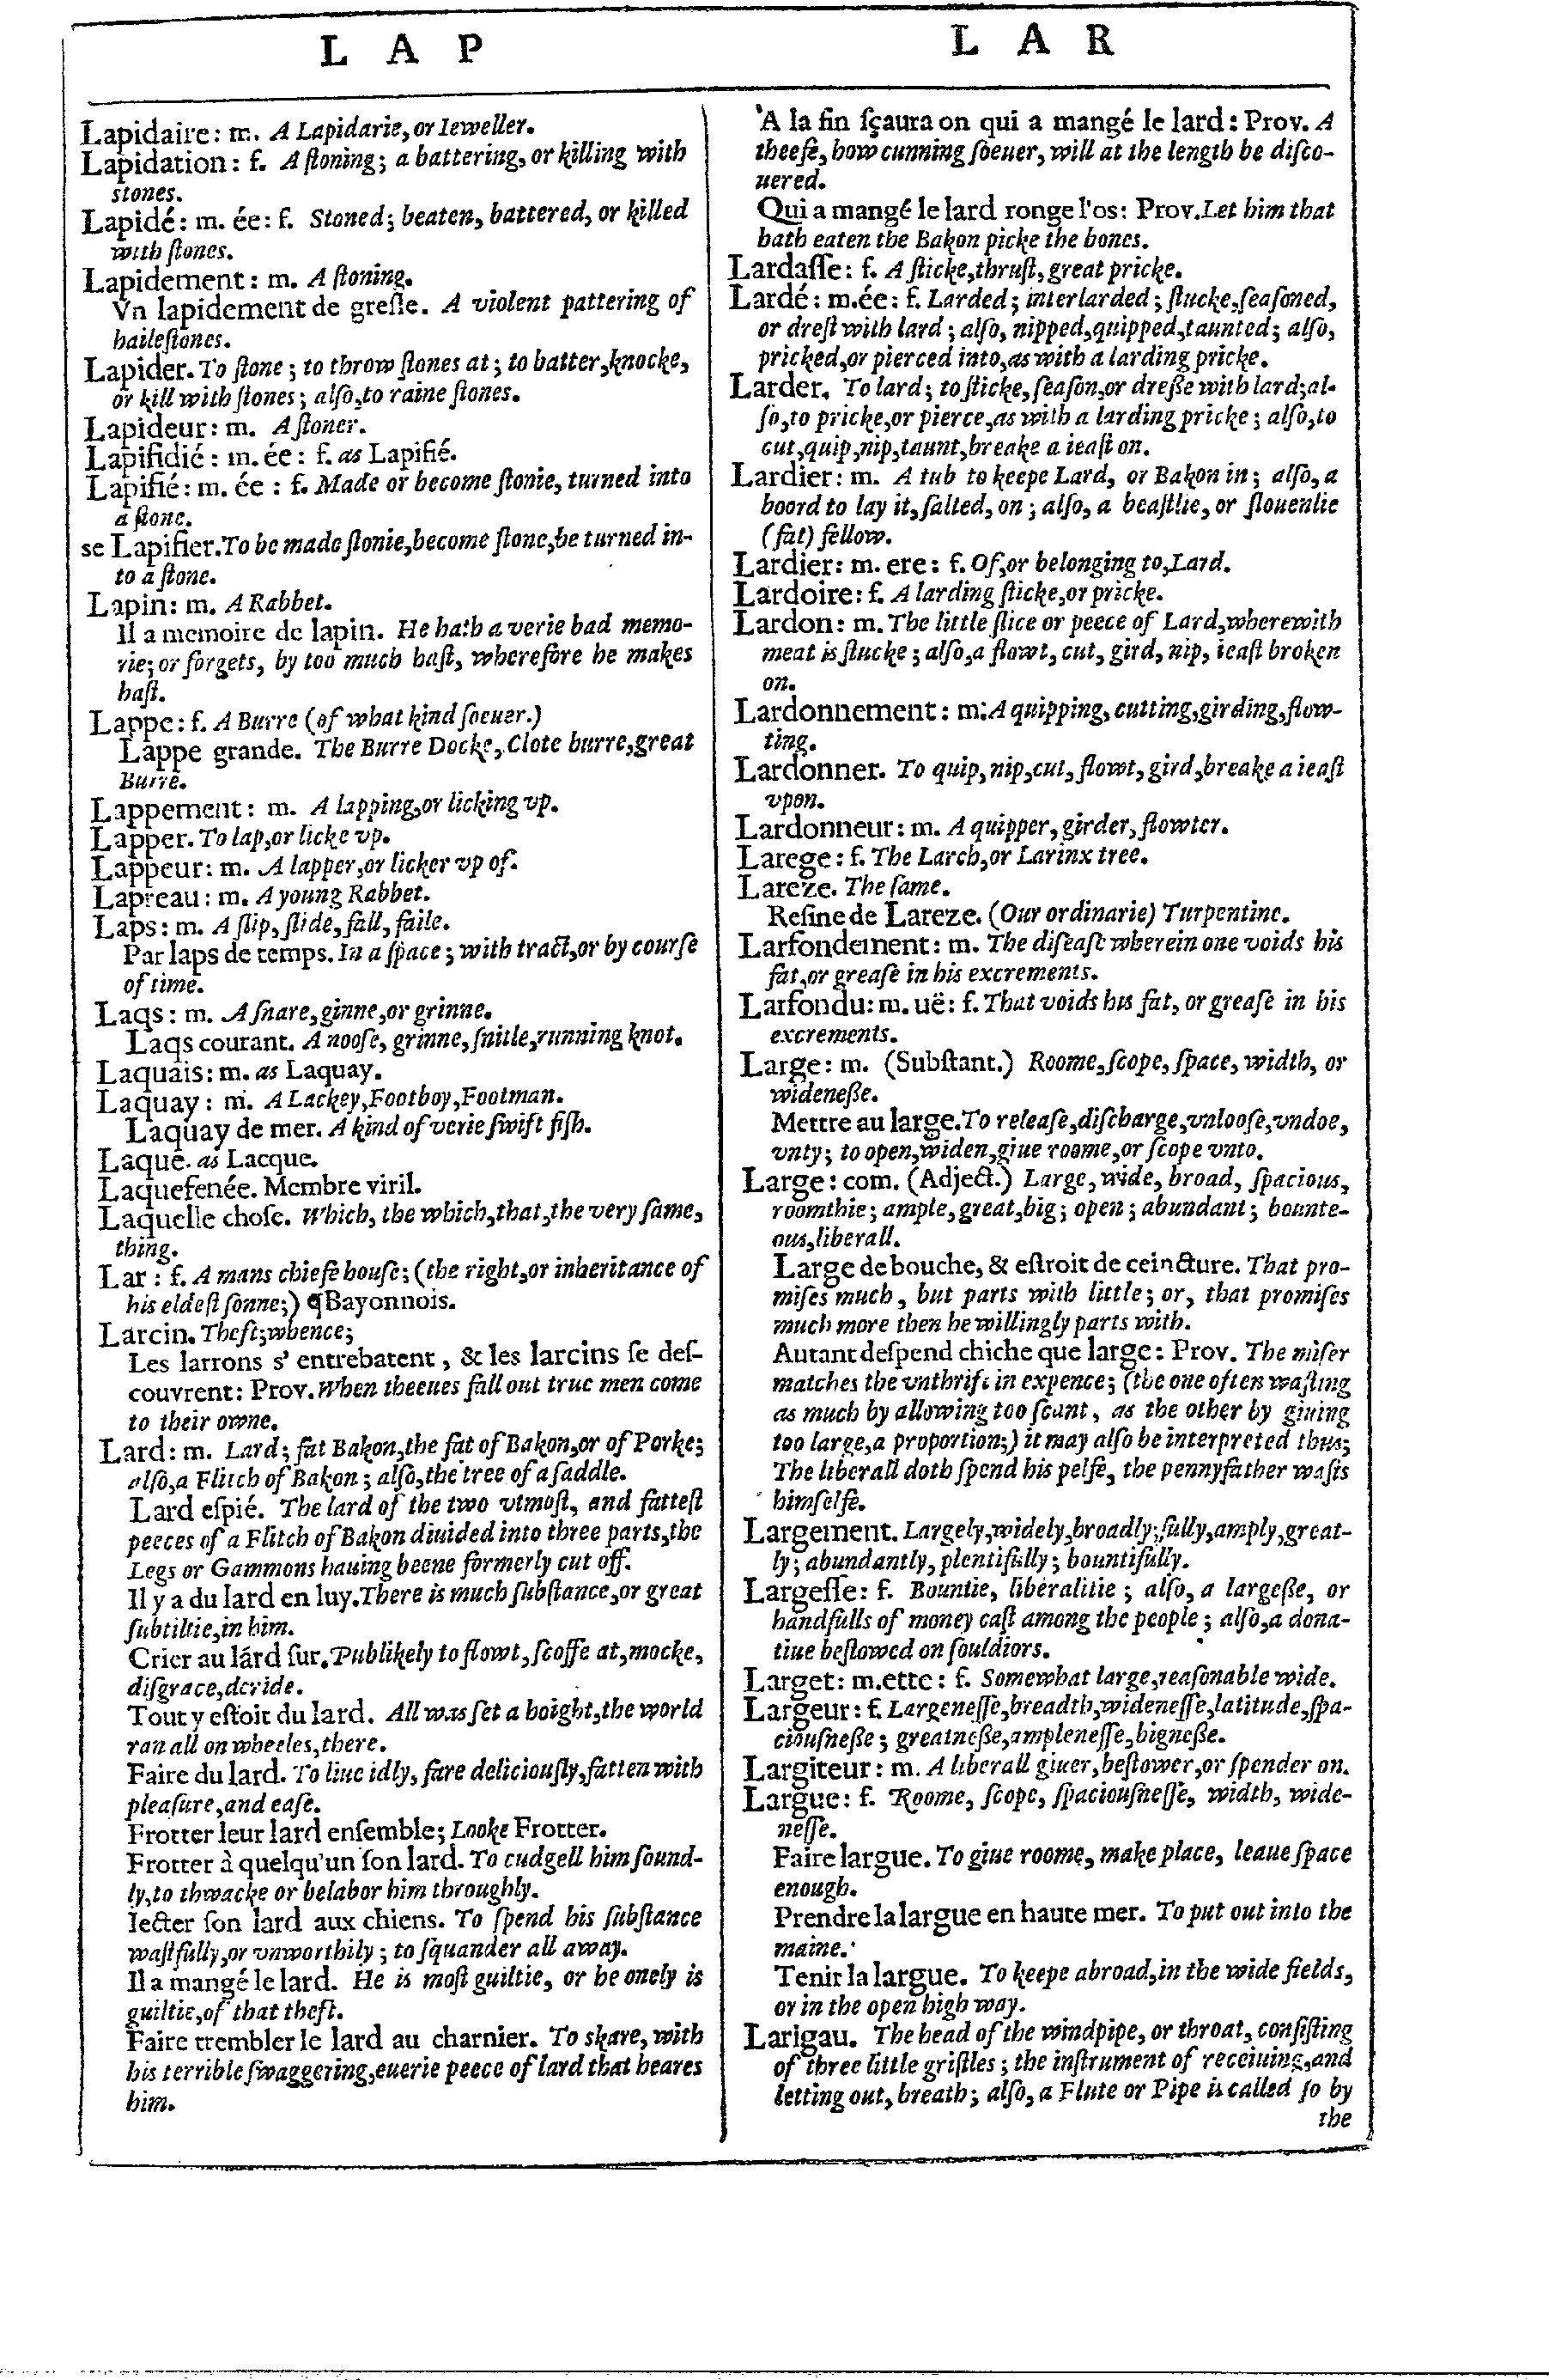 L A P
Lapidaire: m. A Lapidarie, or Ieweller.
Lapidation: f. A ſtoning; a battering, or killing with
stones.
Lapidé: m. ée: f. Stoned; beaten, battered, or killed
with ſtones.
Lapidement: m. A ſtoning.
Vn lapidement de greſle. A violent pattering of
haileſtones.
Lapider. To ſtone; to throw ſtones at; to batter, knocke,
or kill with ſtones; alſo, to raine ſtones.
Lapideur: m. A ſtoner.
Lapifidié: m. ée: f. as Lapifié.
Lapifié: m. ée: f. Made or become ſtonie, turned into
a ſtone.
se Lapifier. To be made ſtonie, become ſtone, be turned in-
to a ſtone.
Lapin: m. A Rabbet.
Il a memoire de lapin. He hath a verie bad memo-
rie; or forgets, by too much haſt, wherefore he makes
haſt.
Lappe: f. A Burre (of what kind ſoeuer.)
Lappe grande. The Burre Docke, Clote burre, great
Burre.
Lappement: m. A lapping, or licking vp.
Lapper. To lap, or licke vp.
Lappeur: m. A lapper, or licker vp of.
Lapreau: m. A young Rabbet.
Laps: m. A ſlip, ſlide, fall, faile.
Par laps de temps. In a ſpace; with tract, or by courſe
of time.
Laqs: m. A ſnare, ginne, or grinne.
Laqs courant. A nooſe, grinne, ſnitle, running knot.
Laquais: m. as Laquay.
Laquay: m. A Lackey, Footboy, Footman.
Laquay de mer. A kind of verie ſwift fiſh.
Laque. as Lacque.
Laquefenée. Membre viril.
Laquelle choſe. Which, the which, that, the very ſame,
thing.
Lar: f. A mans chiefe houſe; (the right, or inheritance of
his eldeſt ſonne;) ¶Bayonnois.
Larcin. Theft; whence;
Les larrons s' entrebatent, & les larcins ſe deſ-
couvrent: Prov. When theeues fall out true men come
to their owne.
Lard: m. Lard; fat Bakon, the fat of Bakon, or of Porke;
alſo, a Flitch of Bakon; alſo, the tree of a ſaddle.
Lard eſpié. The lard of the two vtmoſt, and fatteſt
peeces of a Flitch of Bakon diuided into three parts, the
Legs or Gammons hauing beene formerly cut off.
Il y a du lard en luy. There is much ſubſtance, or great
ſubtiltie, in him.
Crier au lárd ſur. Publikely to flowt, ſcoffe at, mocke,
diſgrace, deride.
Tout y eſtoit du lard. All was ſet a hoight, the world
ran all on wheeles, there.
Faire du lard. To liue idly, fare deliciouſly, fatten with
pleaſure, and eaſe.
Frotter leur lard enſemble; Looke Frotter.
Frotter à quelqu'un ſon lard. To cudgell him ſound-
ly, to thwacke or belabor him throughly.
Iecter ſon lard aux chiens. To ſpend his ſubſtance
waſtfully, or vnworthily; to ſquander all away.
Il a mangé le lard. He is moſt guiltie, or he onely is
guiltie, of that theft.
Faire trembler le lard au charnier. To skare, with
his terrible ſwaggering, euerie peece of lard that heares
him.
L A R
A la fin ſçaura on qui a mangé le lard: Prov. A
theefe, how cunning ſoeuer, will at the length be diſco-
uered.
Qui a mangé le lard ronge l'os: Prov. Let him that
hath eaten the Bakon picke the bones.
Lardaſſe: f. A ſticke, thruſt, great pricke.
Lardé: m. ée: f. Larded; interlarded; ſtucke, ſeaſoned,
or dreſt with lard; alſo, nipped, quipped, taunted; alſo,
pricked, or pierced into, as with a larding pricke.
Larder. To lard; to ſticke, ſeaſon, or dreße with lard; al-
ſo, to pricke, or pierce, as with a larding pricke; alſo, to
cut, quip, nip, taunt, breake a ieaſt on.
Lardier: m. A tub to keepe Lard, or Bakon in; alſo, a
boord to lay it, ſalted, on; alſo, a beaſtlie, or ſlouenlie
(fat) fellow.
Lardier: m. ere: f. Of, or belonging to, Lard.
Lardoire: f. A larding ſticke, or pricke.
Lardon: m. The little ſlice or peece of Lard, wherewith
meat is ſtucke; alſo, a flowt, cut, gird, nip, ieaſt broken
on.
Lardonnement: m. A quipping, cutting, girding, flow-
ting.
Lardonner. To quip, nip, cut, flowt, gird, breake a ieaſt
vpon.
Lardonneur: m. A quipper, girder, flowter.
Larege: f. The Larch, or Larinx tree.
Lareze. The ſame.
Reſine de Lareze. (Our ordinarie) Turpentine.
Larfondement: m. The diſeaſe wherein one voids his
fat, or greaſe in his excrements.
Larfondu: m. uë: f. That voids his fat, or greaſe in his
excrements.
Large: m. (Subſtant.) Roome, ſcope, ſpace, width, or
wideneße.
Mettre au large. To releaſe, diſcharge, vnlooſe, vndoe,
vnty; to open, widen, giue roome, or ſcope vnto.
Large: com. (Adject.) Large, wide, broad, ſpacious,
roomthie; ample, great, big; open; abundant; bounte-
ous, liberall.
Large de bouche, & eſtroit de ceincture. That pro-
miſes much, but parts with little; or, that promiſes
much more then he willingly parts with.
Autant deſpend chiche que large: Prov. The miſer
matches the vnthrift in expence; (the one often waſting
as much by allowing too ſcant, as the other by giuing
too large, a proportion;) it may alſo be interpreted thus;
The liberall doth ſpend his pelfe, the pennyfather waſts
himſelfe.
Largement. Largely, widely, broadly; fully, amply, great-
ly; abundantly, plentifully; bountifully.
Largeſſe: f. Bountie, liberalitie; alſo, a largeße, or
handfulls of money caſt among the people; alſo, a dona-
tiue beſtowed on ſouldiors.
Larget: m. ette: f. Somewhat large, reaſonable wide.
Largeur: f. Largeneſſe, breadth, wideneſſe, latitude, ſpa-
ciouſneße; greatneße, ampleneſſe, bigneße.
Largiteur: m. A liberall giuer, beſtower, or ſpender on.
Largue: f. Roome, ſcope, ſpaciouſneſſe, width, wide-
neſſe.
Faire largue. To giue roome, make place, leaue ſpace
enough.
Prendre la largue en haute mer. To put out into the
maine.
Tenir la largue. To keepe abroad, in the wide fields,
or in the open high way.
Larigau. The head of the windpipe, or throat, conſiſting
of three little griſtles; the inſtrument of receiuing, and
letting out, breath; alſo, a Flute or Pipe is called ſo by
the